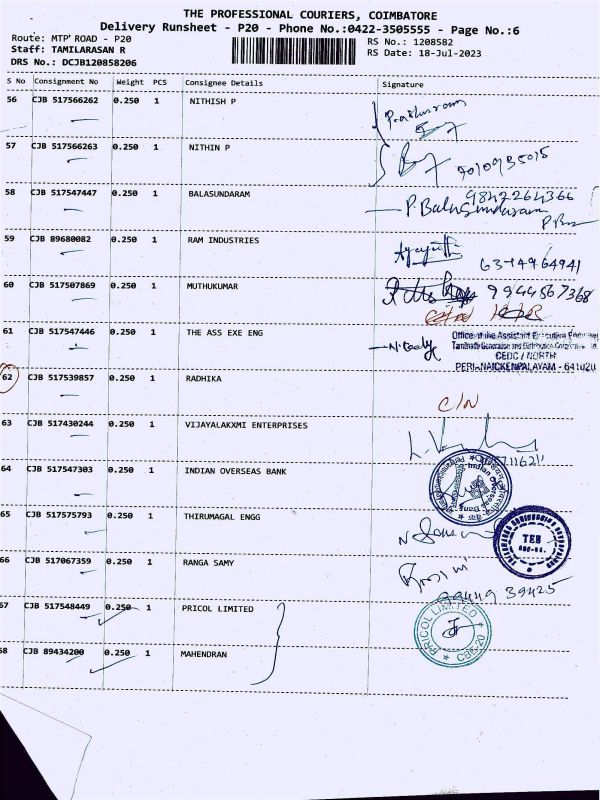 THE PROFESSIONAL COURIERS, COIMBATORE
Delivery Runsheet - P20 - Phone No.:0422-3505555 - Page No.:6
Route: MTP ROAD - P20
RS No.: 1208582
Staff: TAMILARASAN R
RS Date: 18-Jul-2023
DRS No.: DCJB120858206
S No Consignment No Weight PCS Consignee Details Signature
56 CJB 517566262 0.250 1 NITHISH P
57 CJB 517566263 0.250 1 NITHIN P
58 CJB 517547447 0.250 1 BALASUNDARAM 9842264366
P.Balasundaram
59 CJB 89680082 0.250 1 RAM INDUSTRIES
60 CJB 517507869 0.250 1 MUTHUKUMAR 9944567368
61 CJB 517547446 0.250 1 THE ASS EXE ENG
CEDC / NORTH
PERIANAICKENPALAYAM - 641020
62 CJB 517539857 0.250 1 RADHIKA
C/N
63 CJB 517430244 0.250 1 VIJAYALAKXMI ENTERPRISES
64 CJB 517547303 0.250 1 INDIAN OVERSEAS BANK
65 CJB 517575793 0.250 1 THIRUMAGAL ENGG
TEE
66 CJB 517067359 0.250 1 RANGA SAMY
67 CJB 517548449 0.250 1 PRICOL LIMITED
PRICOL LIMITED
CBE-20
68 CJB 89434200 0.250 1 MAHENDRAN